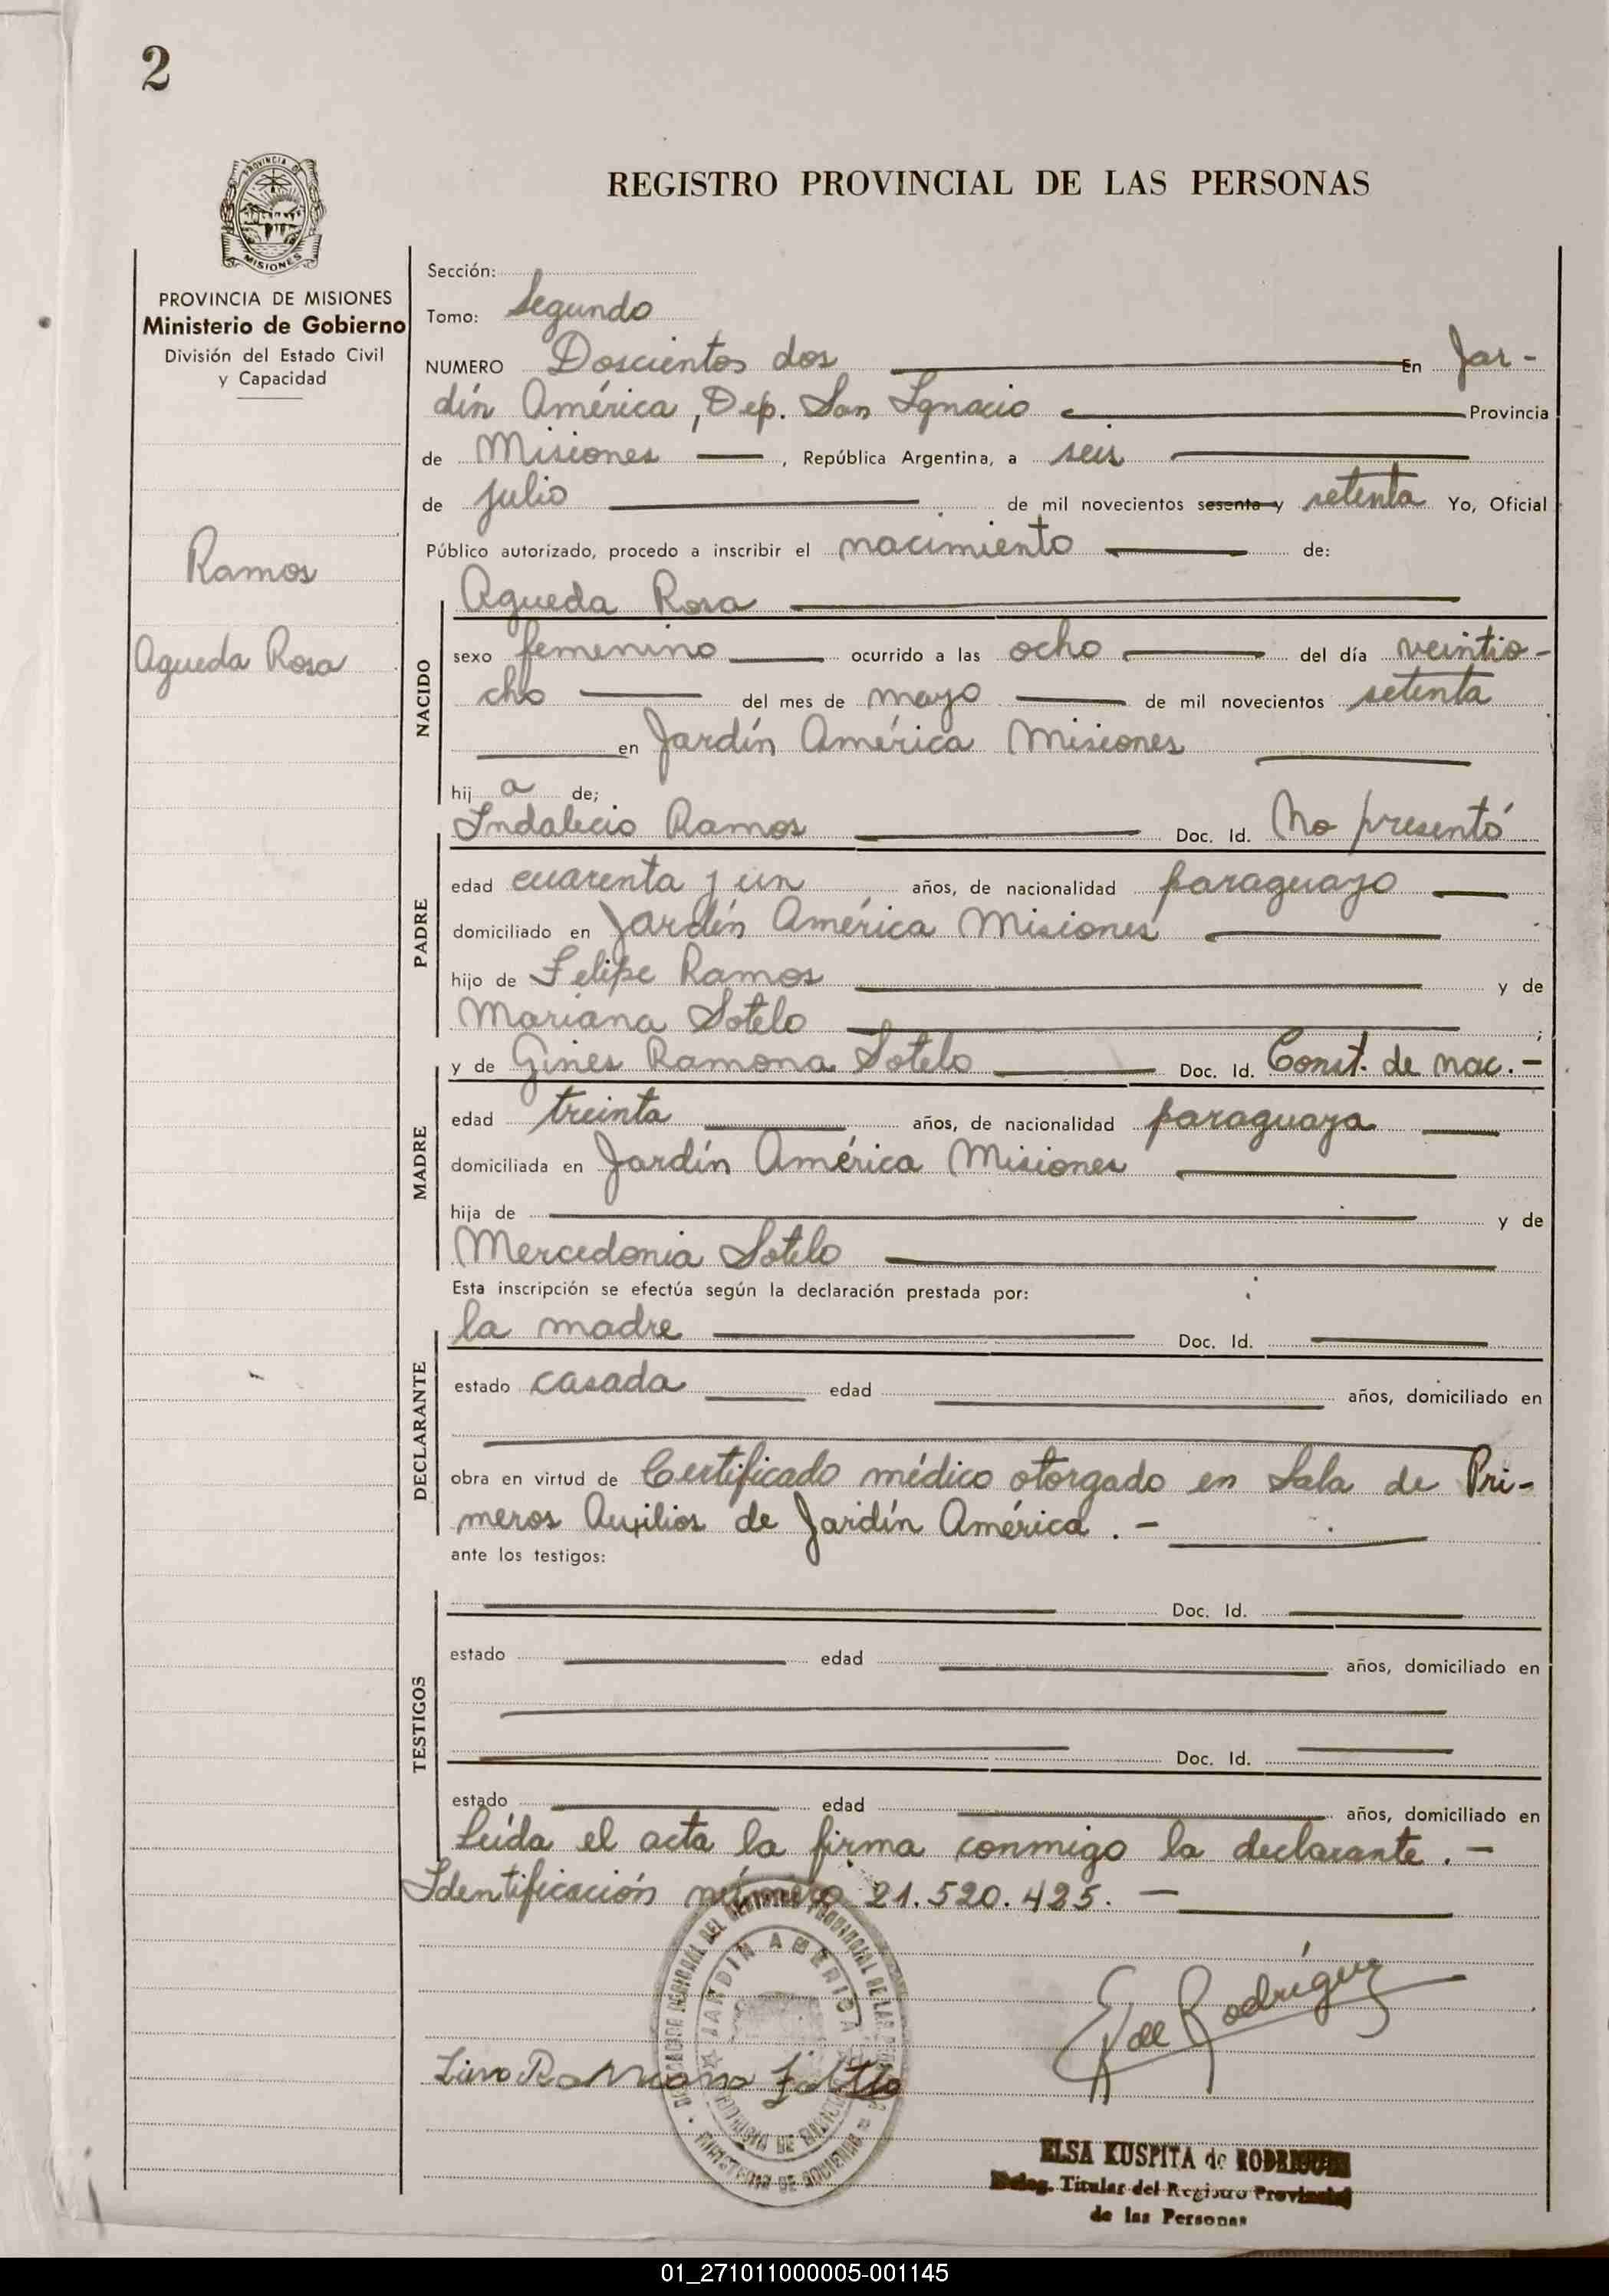 2
PROVINCIA DE
MISIONES
PROVINCIA DE MISIONES
Ministerio de Gobierno
División del Estado Civil
y Capacidad
Ramos
Agueda Rosa
REGISTRO PROVINCIAL DE LAS PERSONAS
Sección:
Tomo: Segundo
NUMERO Doscientos dos En Jar-
dín América, Dep. San Ignacio Provincia
de Misiones, República Argentina, a seis
de julio de mil novecientos sesenta y setenta Yo, Oficial
Público autorizado, procedo a inscribir el nacimiento de:
Agueda Rosa
NACIDO
sexo femenino ocurrido a las ocho del día veintio-
cho del mes de mayo de mil novecientos setenta
en Jardín América Misiones
hij a de;
Indalecio Ramos Doc. Id. No presentó
PADRE
edad cuarenta y un años, de nacionalidad paraguayo
domiciliado en Jardín América Misiones
hijo de Felipe Ramos y de
Mariana Sotelo;
y de Gines Ramona Sotelo Doc. Id. Const. de nac.-
MADRE
edad treinta años, de nacionalidad paraguaya
domiciliada en Jardín América Misiones
hija de y de
Mercedonia Sotelo
Esta inscripción se efectúa según la declaración prestada por:
la madre Doc. Id.
DECLARANTE
estado casada edad años, domiciliado en
obra en virtud de Certificado médico otorgado en Sala de Pri-
meros Auxilios de Jardín América.-
ante los testigos:
TESTIGOS
Doc. Id.
estado edad años, domiciliado en
Doc. Id.
estado edad años, domiciliado en
Leída el acta la firma conmigo la declarante.-
Identificación número 21.520.425.-
JARDIN AMERICA
E de Rodríguez
ELSA KUSPITA de RODRIGUEZ
Deleg. Titular del Registro Provincial
de las Personas
01_271011000005-001145